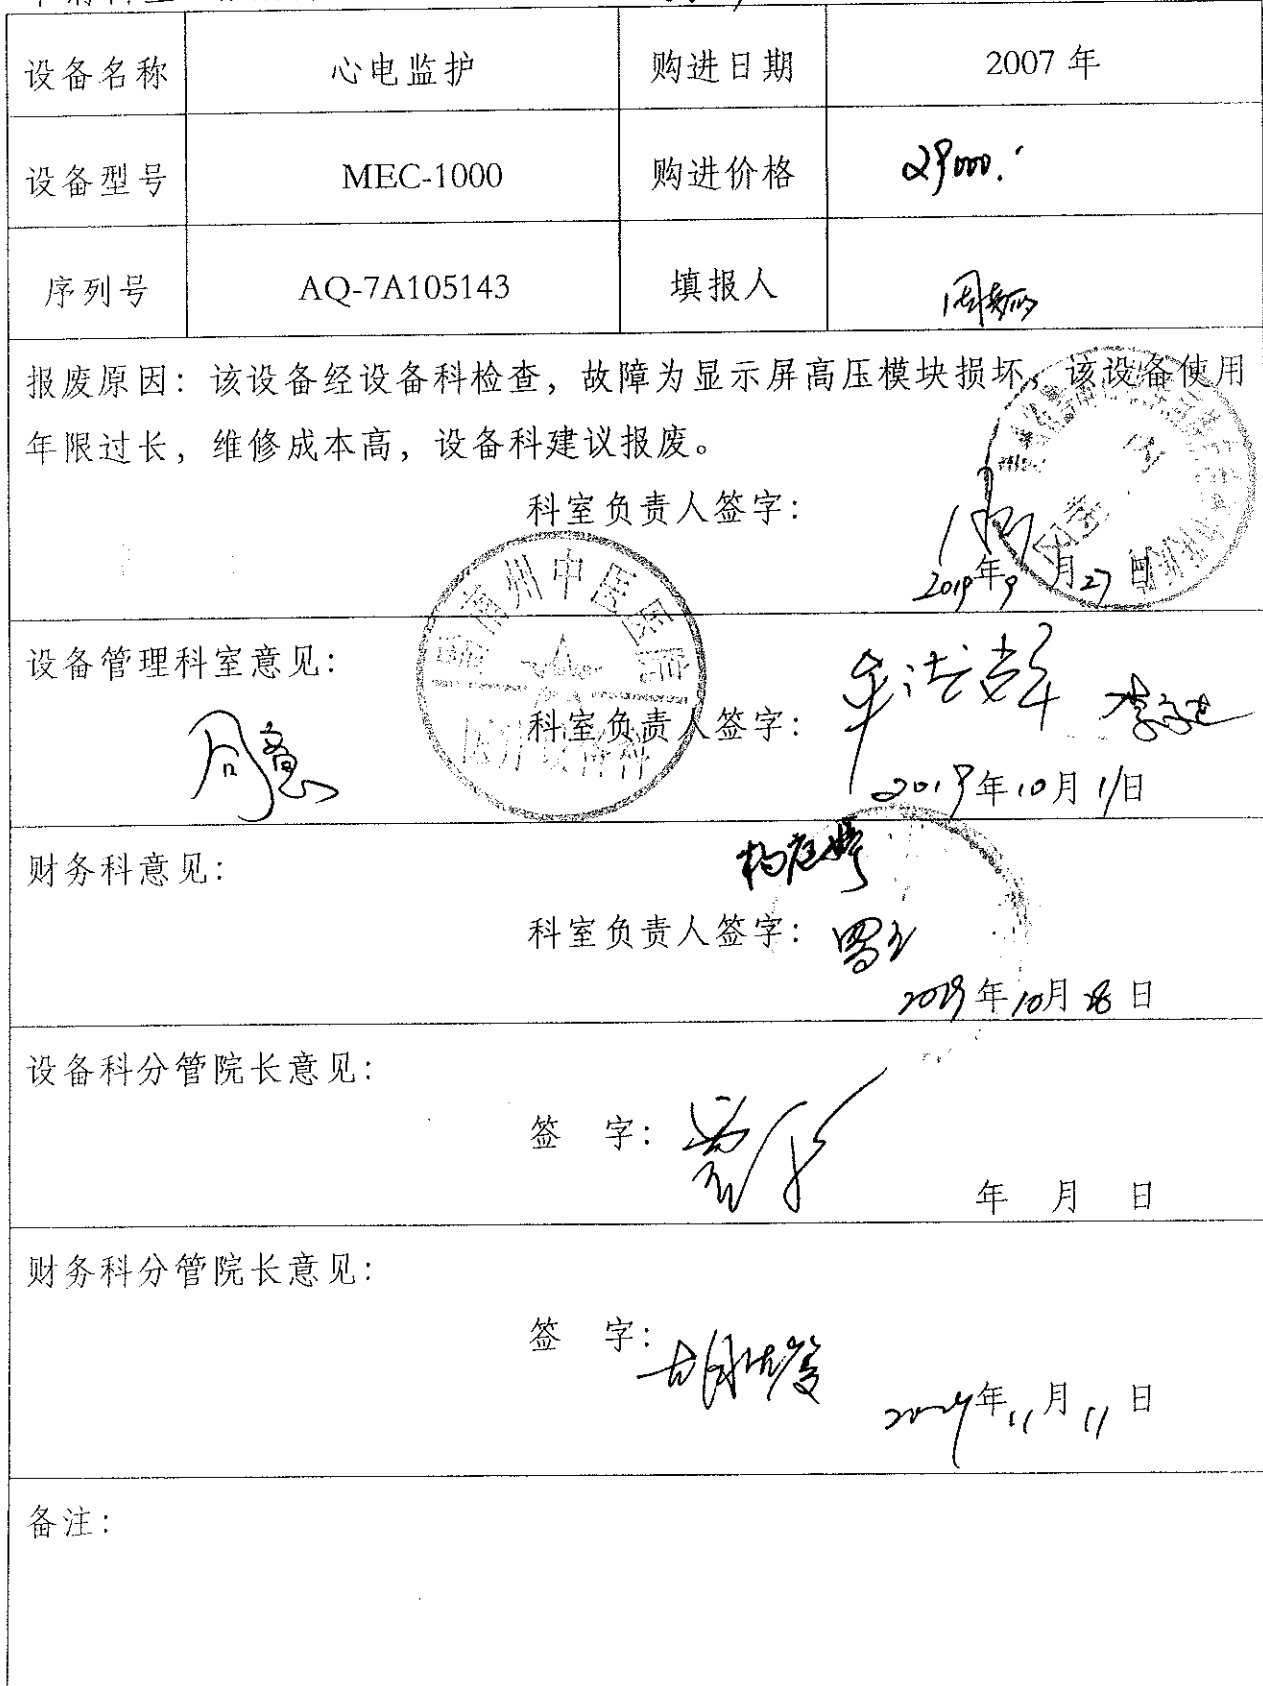 设备名称 心电监护 购进日期 2007 年
设备型号 MEC-1000 购进价格 29000.
序列号 AQ-7A105143 填报人
报废原因：该设备经设备科检查，故障为显示屏高压模块损坏，该设备使用
年限过长，维修成本高，设备科建议报废。
科室负责人签字：
2019年9月27日
黔南州中医医院
设备管理科室意见：
同意
科室负责人签字：
2019年10月11日
财务科意见：
科室负责人签字：
2019年10月28日
设备科分管院长意见：
签 字：
年 月 日
财务科分管院长意见：
签 字：
年11月11日
备注：